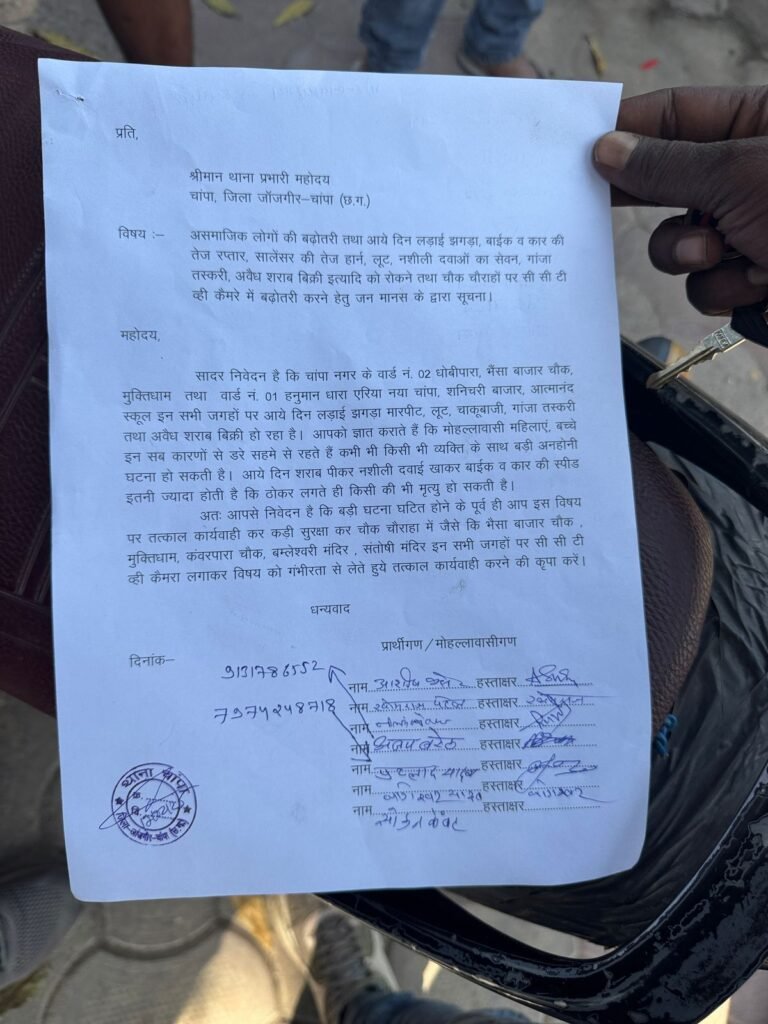 प्रति,
श्रीमान थाना प्रभारी महोदय
चांपा, जिला जॉजगीर–चांपा (छ.ग.)
विषय :– असमाजिक लोगों की बढ़ोतरी तथा आये दिन लड़ाई झगड़ा, बाईक व कार की
तेज रप्तार, सालेंसर की तेज हार्न, लूट, नशीली दवाओं का सेवन, गांजा
तस्करी, अवैध शराब बिक्री इत्यादि को रोकने तथा चौक चौराहों पर सी सी टी
व्ही कैमरे में बढ़ोतरी करने हेतु जन मानस के द्वारा सूचना।
महोदय,
सादर निवेदन है कि चांपा नगर के वार्ड नं. 02 धोबीपारा, भैंसा बाजार चौक,
मुक्तिधाम तथा वार्ड नं. 01 हनुमान धारा एरिया नया चांपा, शनिचरी बाजार, आत्मानंद
स्कूल इन सभी जगहों पर आये दिन लड़ाई झगड़ा मारपीट, लूट, चाकूबाजी, गांजा तस्करी
तथा अवैध शराब बिक्री हो रहा है। आपको ज्ञात कराते हैं कि मोहल्लावासी महिलाएं, बच्चे
इन सब कारणों से डरे सहमे से रहते हैं कभी भी किसी भी व्यक्ति के साथ बड़ी अनहोनी
घटना हो सकती है। आये दिन शराब पीकर नशीली दवाई खाकर बाईक व कार की स्पीड
इतनी ज्यादा होती है कि ठोकर लगते ही किसी की भी मृत्यु हो सकती है।
अतः आपसे निवेदन है कि बड़ी घटना घटित होने के पूर्व ही आप इस विषय
पर तत्काल कार्यवाही कर कड़ी सुरक्षा कर चोक चोराहा में जैसे कि भैसा बाजार चौक ,
मुक्तिधाम, कंवरपारा चौक, बम्लेश्वरी मंदिर , संतोषी मंदिर इन सभी जगहों पर सी सी टी
व्ही कैमरा लगाकर विषय को गंभीरता से लेते हुये तत्काल कार्यवाही करने की कृपा करें।
धन्यवाद
प्रार्थीगण/मोहल्लावासीगण
दिनांक–
9131786552
7974248718
नाम हस्ताक्षर
नाम हस्ताक्षर
नाम हस्ताक्षर
नाम अजय बरेठ हस्ताक्षर
नाम हस्ताक्षर
नाम हस्ताक्षर
नाम हस्ताक्षर
थाना चांपा